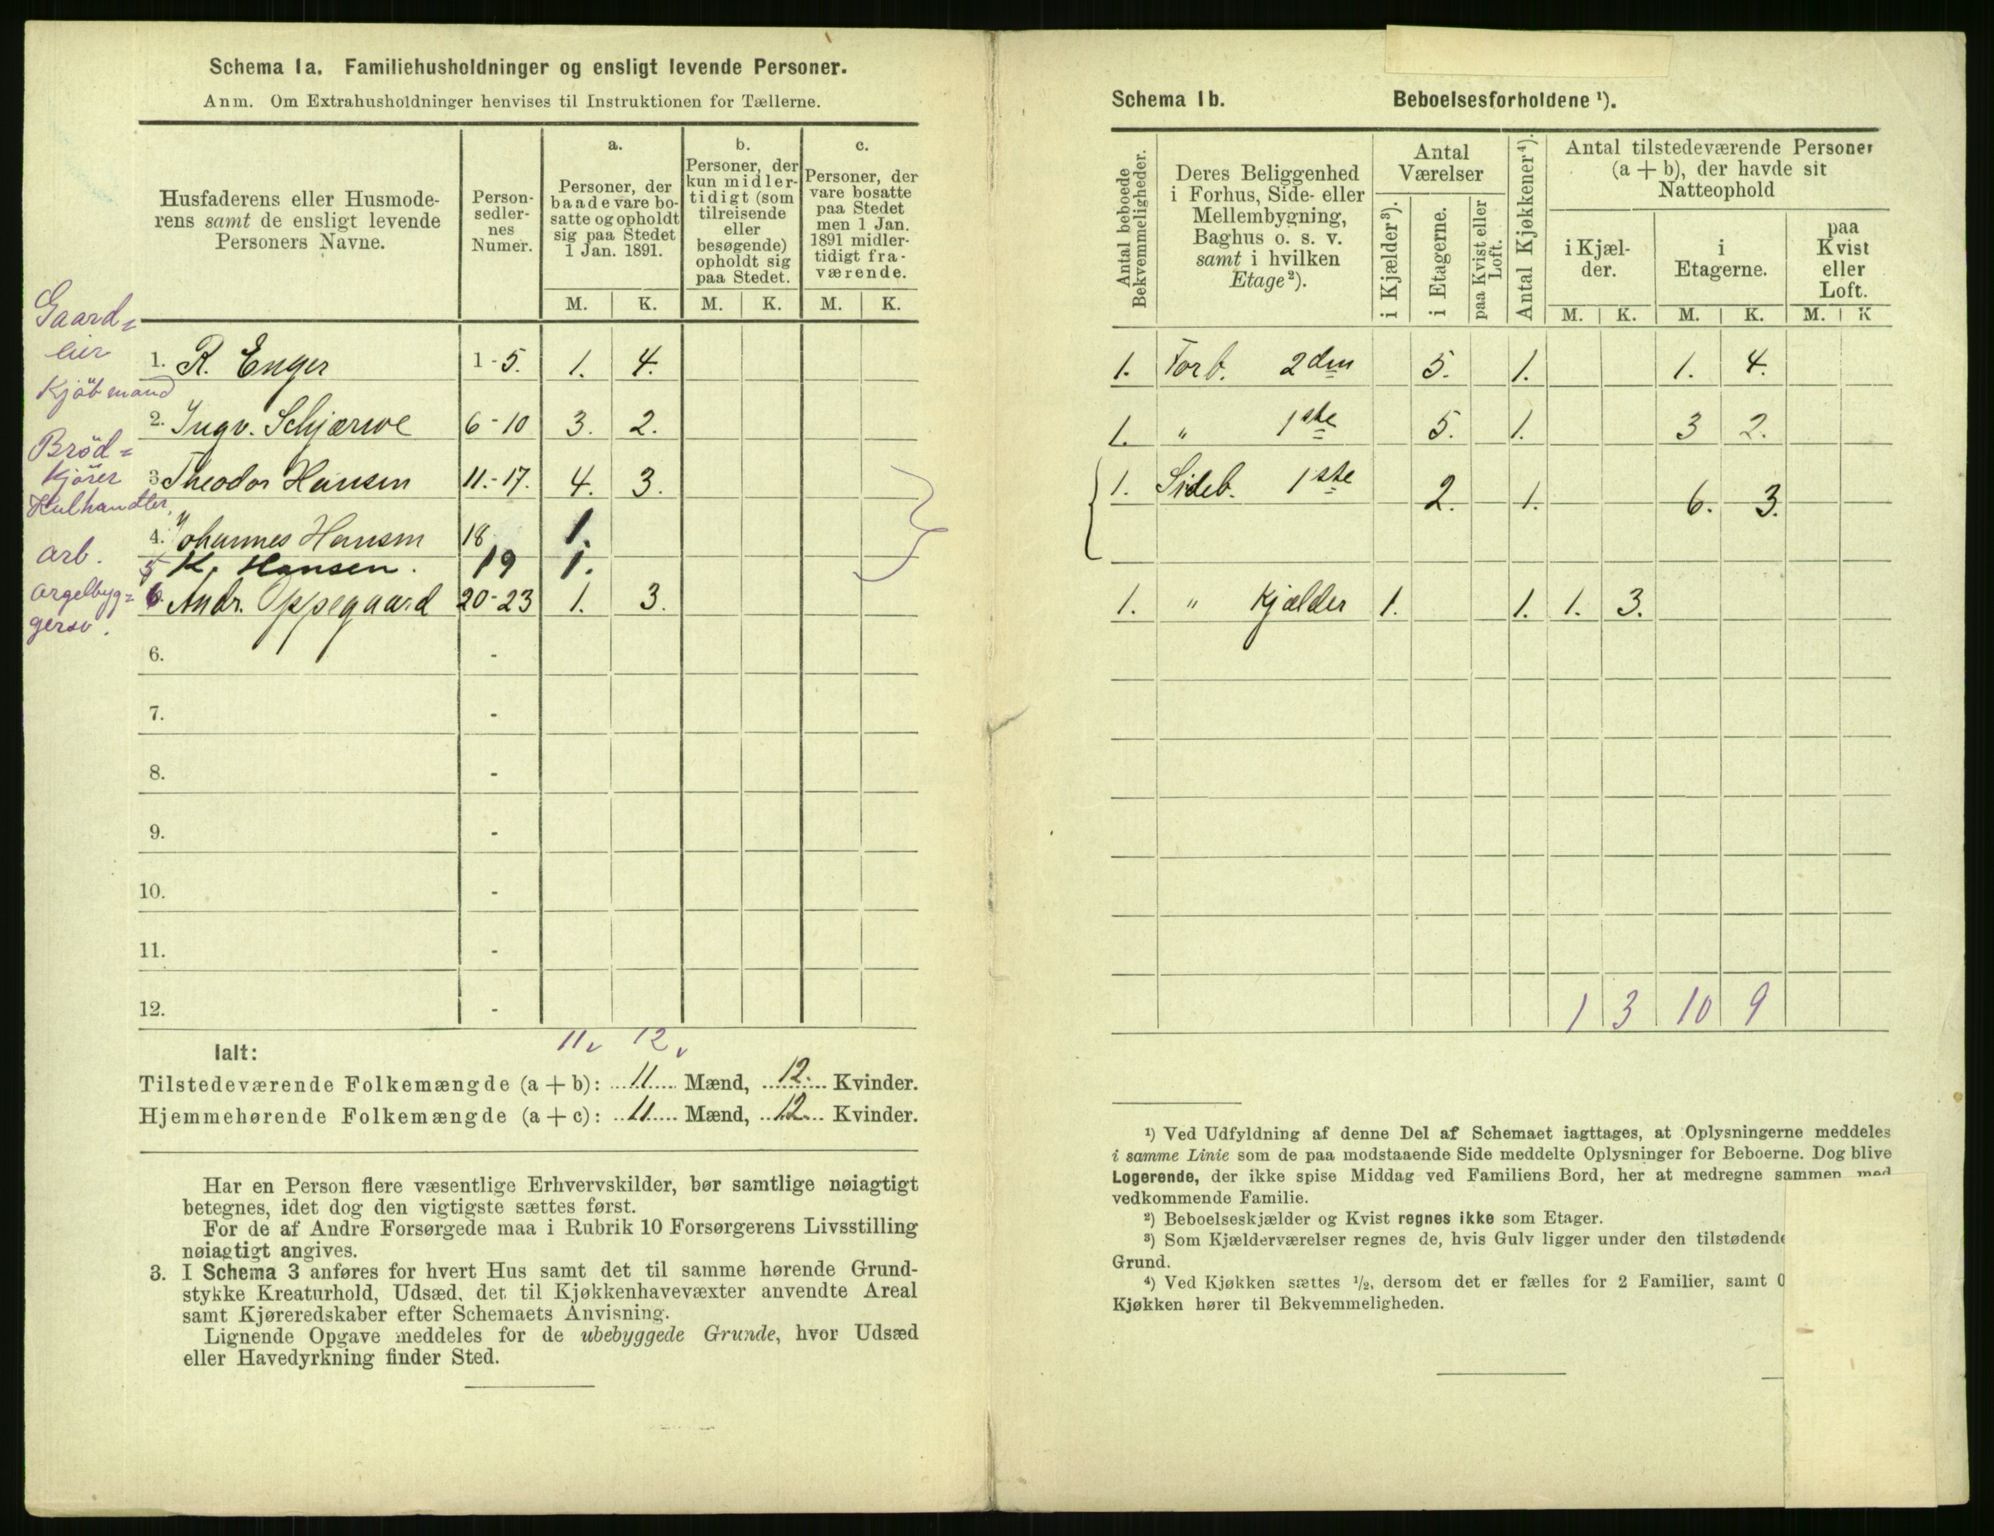 Schema 1a. Familiehusholdninger og ensligt levende Personer.
Anm. Om Extrahusholdninger henvises til Instruktionen for Tællerne.
Husfaderens eller Husmode-
rens samt de ensligt levende
Personers Navne.
Person-
sedler-
nes
Numer.
a.
Personer, der
baade vare bo-
satte og opholdt
sig paa Stedet
1 Jan. 1891.
b.
Personer, der
kun midler-
tidigt (som
tilreisende
eller
besøgende)
opholdt sig
paa Stedet.
c.
Personer, der
vare bosatte
paa Stedet
men 1 Jan.
1891 midler-
tidigt fra-
værende.
M. K. M. K. M. K.
Gaard=
eier
1. R. Enger 1-5. 1. 4.
Kjøbmand
2. Ingv. Schjærve 6-10 3. 2.
Brød=
kjører
3 Theodor Hansen 11.-17. 4. 3.
Kulhandler,
4. Johannes Hansen 18 1.
arb.
5 K. Hansen. 19 1.
orgelbyg=
gersv.
6. Andr. Oppegaard 20-23 1. 3.
6. -
7. -
8. -
9. -
10. -
11. -
12. -
11 12
Ialt:
Tilstedeværende Folkemængde (a + b): 11 Mænd, 12. Kvinder.
Hjemmehørende Folkemængde (a + c): 11 Mænd, 12 Kvinder.
Har en Person flere væsentlige Erhvervskilder, bør samtlige nøiagtigt
betegnes, idet dog den vigtigste sættes først.
For de af Andre Forsørgede maa i Rubrik 10 Forsørgerens Livsstilling
nøiagtigt angives.
3. I Schema 3 anføres for hvert Hus samt det til samme hørende Grund-
stykke Kreaturhold, Udsæd, det til Kjøkkenhavevæxter anvendte Areal
samt Kjøreredskaber efter Schemaets Anvisning.
Lignende Opgave meddeles for de ubebyggede Grunde, hvor Udsæd
eller Havedyrkning finder Sted.
Schema 1b. Beboelsesforholdene ¹).
Antal beboede
Bekvemmeligheder.
Deres Beliggenhed
i Forhus, Side- eller
Mellembygning,
Baghus o. s. v.
samt i hvilken
Etage²).
Antal
Værelser
i Kjælder³).
i Etagerne.
paa Kvist eller
Loft.
Antal Kjøkkener⁴).
Antal tilstedeværende Personer
(a + b), der havde sit
Natteophold
i Kjæl-
der.
i
Etagerne.
paa
Kvist
eller
Loft.
M. K. M. K. M. K
1. Forb. 2den 5. 1. 1. 4.
1. " 1ste 5. 1. 3 2.
1. Sideb. 1ste 2. 1. 6. 3.
1. " Kjælder 1. 1. 1. 3.
1 3 10 9
¹) Ved Udfyldning af denne Del af Schemaet iagttages, at Oplysningerne meddeles
i samme Linie som de paa modstaaende Side meddelte Oplysninger for Beboerne. Dog blive
Logerende, der ikke spise Middag ved Familiens Bord, her at medregne sammen med
vedkommende Familie.
²) Beboelseskjælder og Kvist regnes ikke som Etager.
³) Som Kjælderværelser regnes de, hvis Gulv ligger under den tilstødende
Grund.
⁴) Ved Kjøkken sættes ½, dersom det er fælles for 2 Familier, samt 0
Kjøkken hører til Bekvemmeligheden.